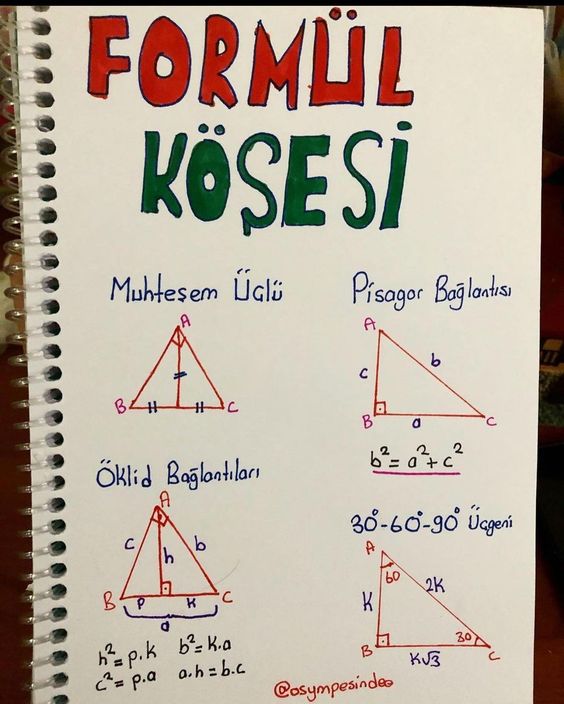 FORMÜL
KÖŞESİ
Muhteşem Üçlü
A
B
C
Pisagor Bağlantısı
A
c
b
B
a
C
b² = a² + c²
Öklid Bağlantıları
A
c
h
b
B
p
k
C
a
h² = p.k
b² = k.a
c² = p.a
a.h = b.c
30°-60°-90° Üçgeni
A
60
K
2K
B
30
C
K√3
@osympesindeo